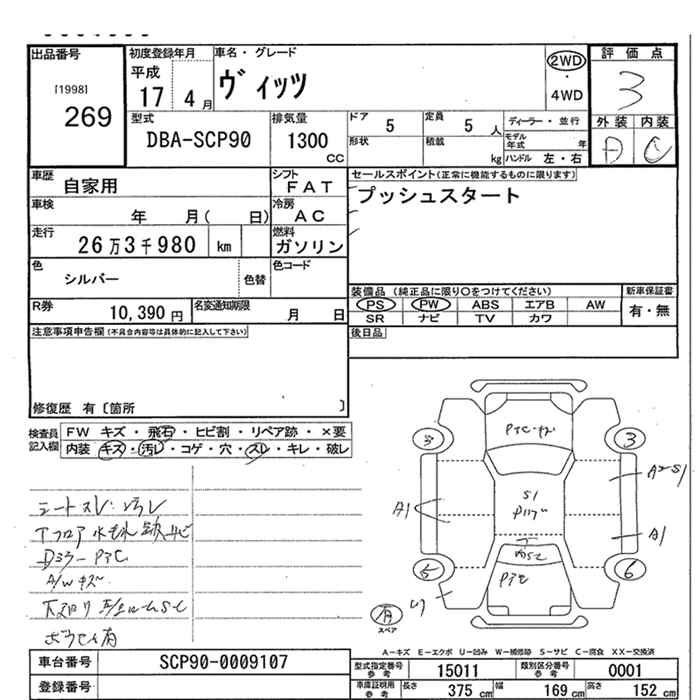 出品番号
[1998]
269
初度登録年月
平成
17 4月
車名・グレード
ヴィッツ
2WD
・
4WD
評価点
3
外装 内装
D C
型式
DBA-SCP90
排気量
1300
CC
ドア
5
定員
5 人
形状
積載
kg
ディーラー・並行
モデル年式 年
ハンドル 左・右
車歴
自家用
シフト
FAT
車検
年 月( 日)
冷房
AC
走行
26万3千980 km
燃料
ガソリン
色
シルバー
色替
色コード
R券
10,390 円
名変通知期限
月 日
セールスポイント(正常に機能するものに限ります)
プッシュスタート
装備品 (純正品に限り○をつけてください)
PS PW ABS エアB AW
SR ナビ TV カワ
新車保証書
有・無
後日品
注意事項申告欄(不具合内容等は具体的に記入して下さい)
修復歴 有〔箇所 〕
検査員記入欄
FW キズ・飛石・ヒビ割・リペア跡・×要
内装 キズ・汚レ・コゲ・穴・スレ・キレ・破レ
シートスレ・汚レ
Dミラー PTC
A/W キズ
3
3
A1
S1
A1
5
6
スペア
A-キズ E-エクボ U-凹み W-補修跡 S-サビ C-腐食 XX-交換済
車台番号
SCP90-0009107
登録番号
型式指定番号
参考
15011
類別区分番号
参考
0001
車庫証明用
参考
長さ 375 cm
幅 169 cm
高さ 152 cm